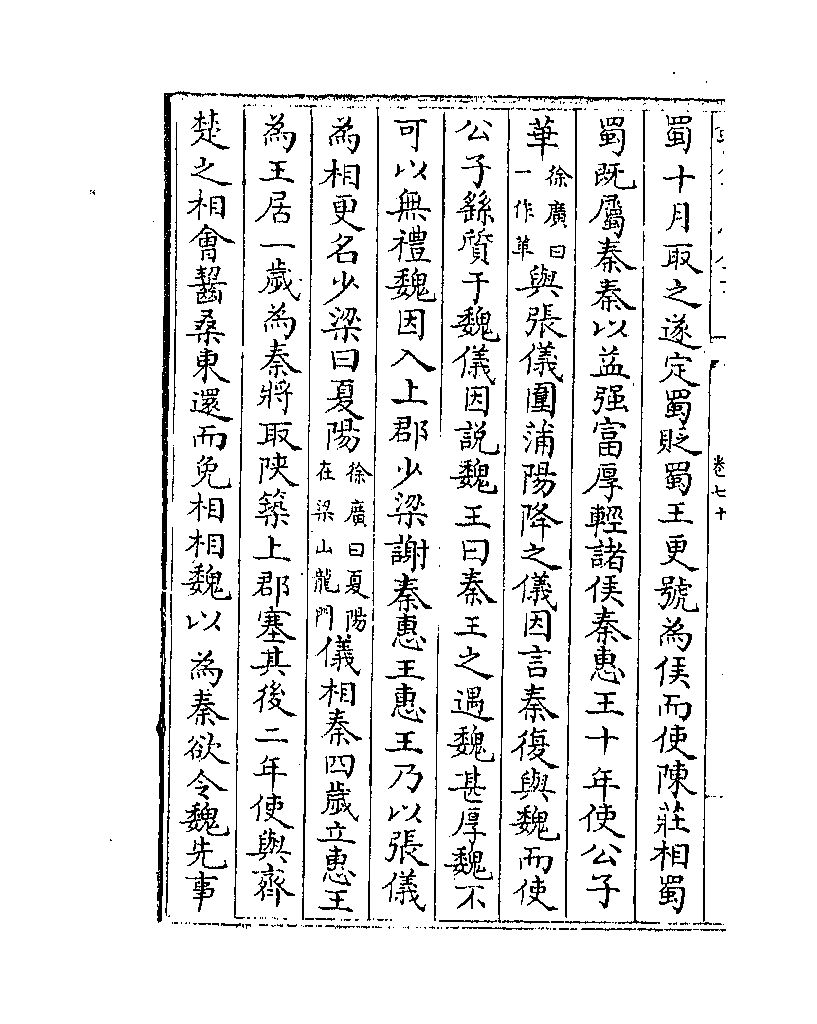 蜀十月取之遂定蜀貶蜀王更號為侯而使陳莊相蜀
蜀既屬秦秦以益强富厚輕諸侯秦惠王十年使公子
華徐廣曰一作革與張儀圍蒲陽降之儀因言秦復與魏而使
公子繇質于魏儀因說魏王曰秦王之遇魏甚厚魏不
可以無禮魏因入上郡少梁謝秦惠王惠王乃以張儀
為相更名少梁曰夏陽徐廣曰夏陽在梁山龍門儀相秦四歲立惠王
為王居一歲為秦將取陜築上郡塞其後二年使與齊
楚之相會齧桑東還而免相相魏以為秦欲令魏先事
卷七十